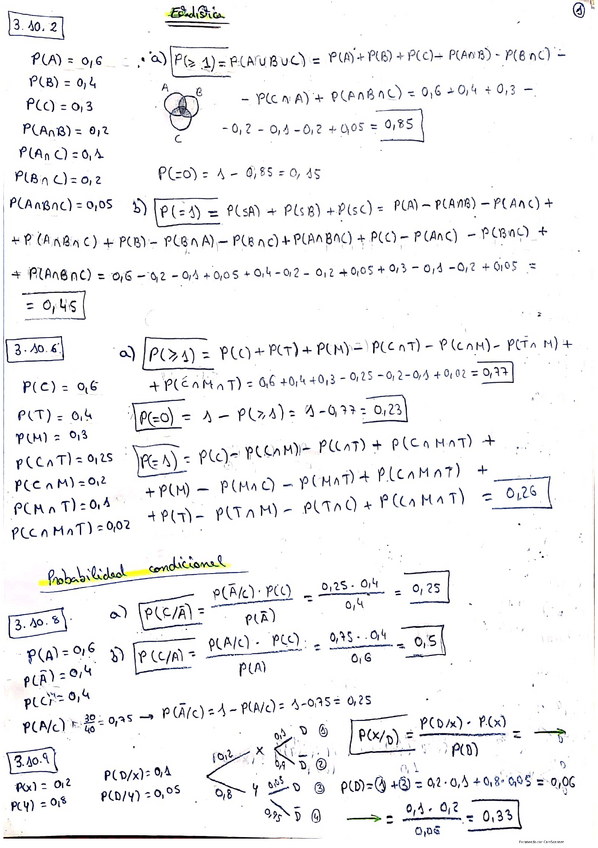 Estadística
①
3.10.2
P(A) = 0,6
P(B) = 0,4
P(C) = 0,3
P(A∩B) = 0,2
P(A∩C) = 0,1
P(B∩C) = 0,2
P(A∩B∩C) = 0,05
a) P(≥ 1) = P(A∪B∪C) = P(A) + P(B) + P(C) + P(A∩B) - P(B∩C) -
- P(C∩A) + P(A∩B∩C) = 0,6 + 0,4 + 0,3 -
- 0,2 - 0,1 - 0,2 + 0,05 = 0,85
A B
C
P(=0) = 1 - 0,85 = 0,15
b) P(=1) = P(sA) + P(sB) + P(sC) = P(A) - P(A∩B) - P(A∩C) +
+ P(A∩B∩C) + P(B) - P(B∩A) - P(B∩C) + P(A∩B∩C) + P(C) - P(A∩C) - P(B∩C) +
+ P(A∩B∩C) = 0,6 - 0,2 - 0,1 + 0,05 + 0,4 - 0,2 - 0,2 + 0,05 + 0,3 - 0,1 - 0,2 + 0,05 =
= 0,45
3.10.6
P(C) = 0,6
P(T) = 0,4
P(M) = 0,3
P(C∩T) = 0,25
P(C∩M) = 0,2
P(M∩T) = 0,1
P(C∩M∩T) = 0,02
a) P(≥1) = P(C) + P(T) + P(M) - P(C∩T) - P(C∩M) - P(T∩M) +
+ P(C∩M∩T) = 0,6 + 0,4 + 0,3 - 0,25 - 0,2 - 0,1 + 0,02 = 0,77
P(=0) = 1 - P(≥1) = 1 - 0,77 = 0,23
P(=1) = P(C) - P(C∩M) - P(C∩T) + P(C∩M∩T) +
+ P(M) - P(M∩C) - P(M∩T) + P(C∩M∩T) +
+ P(T) - P(T∩M) - P(T∩C) + P(C∩M∩T) = 0,26
Probabilidad condicional
3.10.8
P(A) = 0,6
P(Ā) = 0,4
P(C) = 0,4
P(A/C) = 30/40 = 0,75 → P(Ā/C) = 1 - P(A/C) = 1 - 0,75 = 0,25
a) P(C/Ā) = P(Ā/C) · P(C) / P(Ā) = 0,25 · 0,4 / 0,4 = 0,25
b) P(C/A) = P(A/C) · P(C) / P(A) = 0,75 · 0,4 / 0,6 = 0,5
3.10.9
P(X) = 0,2
P(Y) = 0,8
P(D/X) = 0,1
P(D/Y) = 0,05
0,2 X 0,1 D ①
0,9 D̄ ②
0,8 Y 0,05 D ③
0,95 D̄ ④
P(X/D) = P(D/X) · P(X) / P(D) = →
P(D) = ① + ③ = 0,2 · 0,1 + 0,8 · 0,05 = 0,06
→ = 0,1 · 0,2 / 0,06 = 0,33